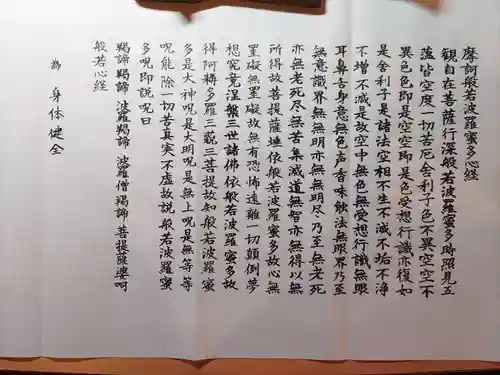 摩訶般若波羅蜜多心経
観自在菩薩行深般若波羅蜜多時照見五
蘊皆空度一切苦厄舎利子色不異空空不
異色色即是空空即是色受想行識亦復如
是舎利子是諸法空相不生不滅不垢不浄
不増不減是故空中無色無受想行識無眼
耳鼻舌身意無色声香味触法無眼界乃至
無意識界無無明亦無無明尽乃至無老死
亦無老死尽無苦集滅道無智亦無得以無
所得故菩提薩埵依般若波羅蜜多故心無
罣礙無罣礙故無有恐怖遠離一切顛倒夢
想究竟涅槃三世諸佛依般若波羅蜜多故
得阿耨多羅三藐三菩提故知般若波羅蜜
多是大神呪是大明呪是無上呪是無等等
呪能除一切苦真実不虚故説般若波羅蜜
多呪即説呪曰
羯諦羯諦 波羅羯諦 波羅僧羯諦 菩提薩婆呵
般若心経
為 身体健全